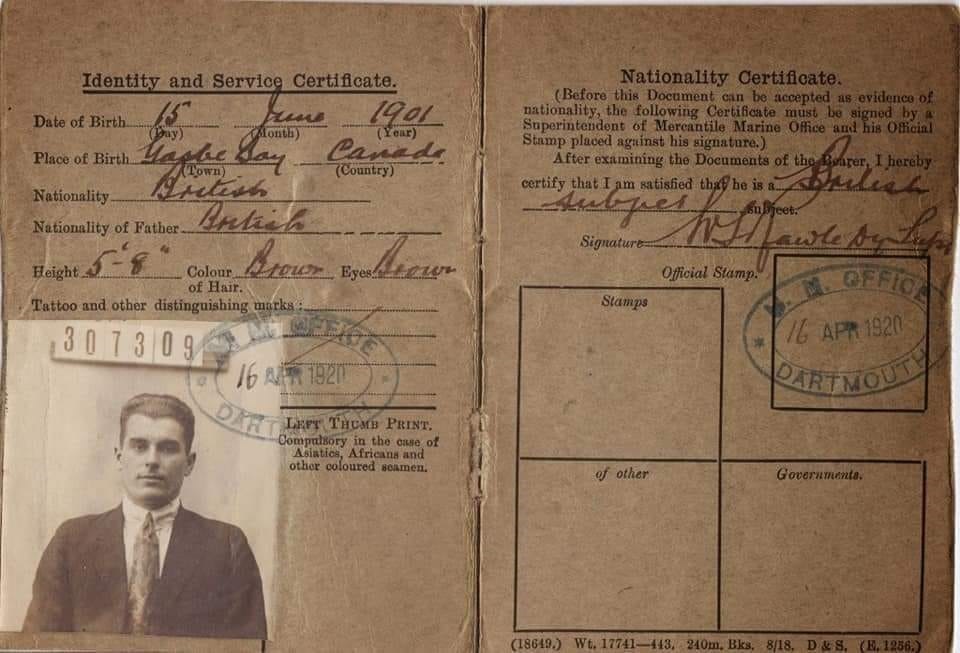 Identity and Service Certificate.
Date of Birth 15 June 1901
(Day) (Month) (Year)
Place of Birth Gaspe Bay Canada
(Town) (Country)
Nationality British
Nationality of Father British
Height 5'-8" Colour of Hair. Brown Eyes Brown
Tattoo and other distinguishing marks :
307309
M. M. OFFICE
16 APR 1920
DARTMOUTH
LEFT THUMB PRINT.
Compulsory in the case of
Asiatics, Africans and
other coloured seamen.
Nationality Certificate.
(Before this Document can be accepted as evidence of
nationality, the following Certificate must be signed by a
Superintendent of Mercantile Marine Office and his Official
Stamp placed against his signature.)
After examining the Documents of the Bearer, I hereby
certify that I am satisfied that he is a British
subject subject.
Signature
Official Stamp.
M. M. OFFICE
16 APR 1920
DARTMOUTH
Stamps
of other Governments.
(18649.) Wt. 17741—443. 240m. Bks. 8/18. D & S. (E. 1256.)